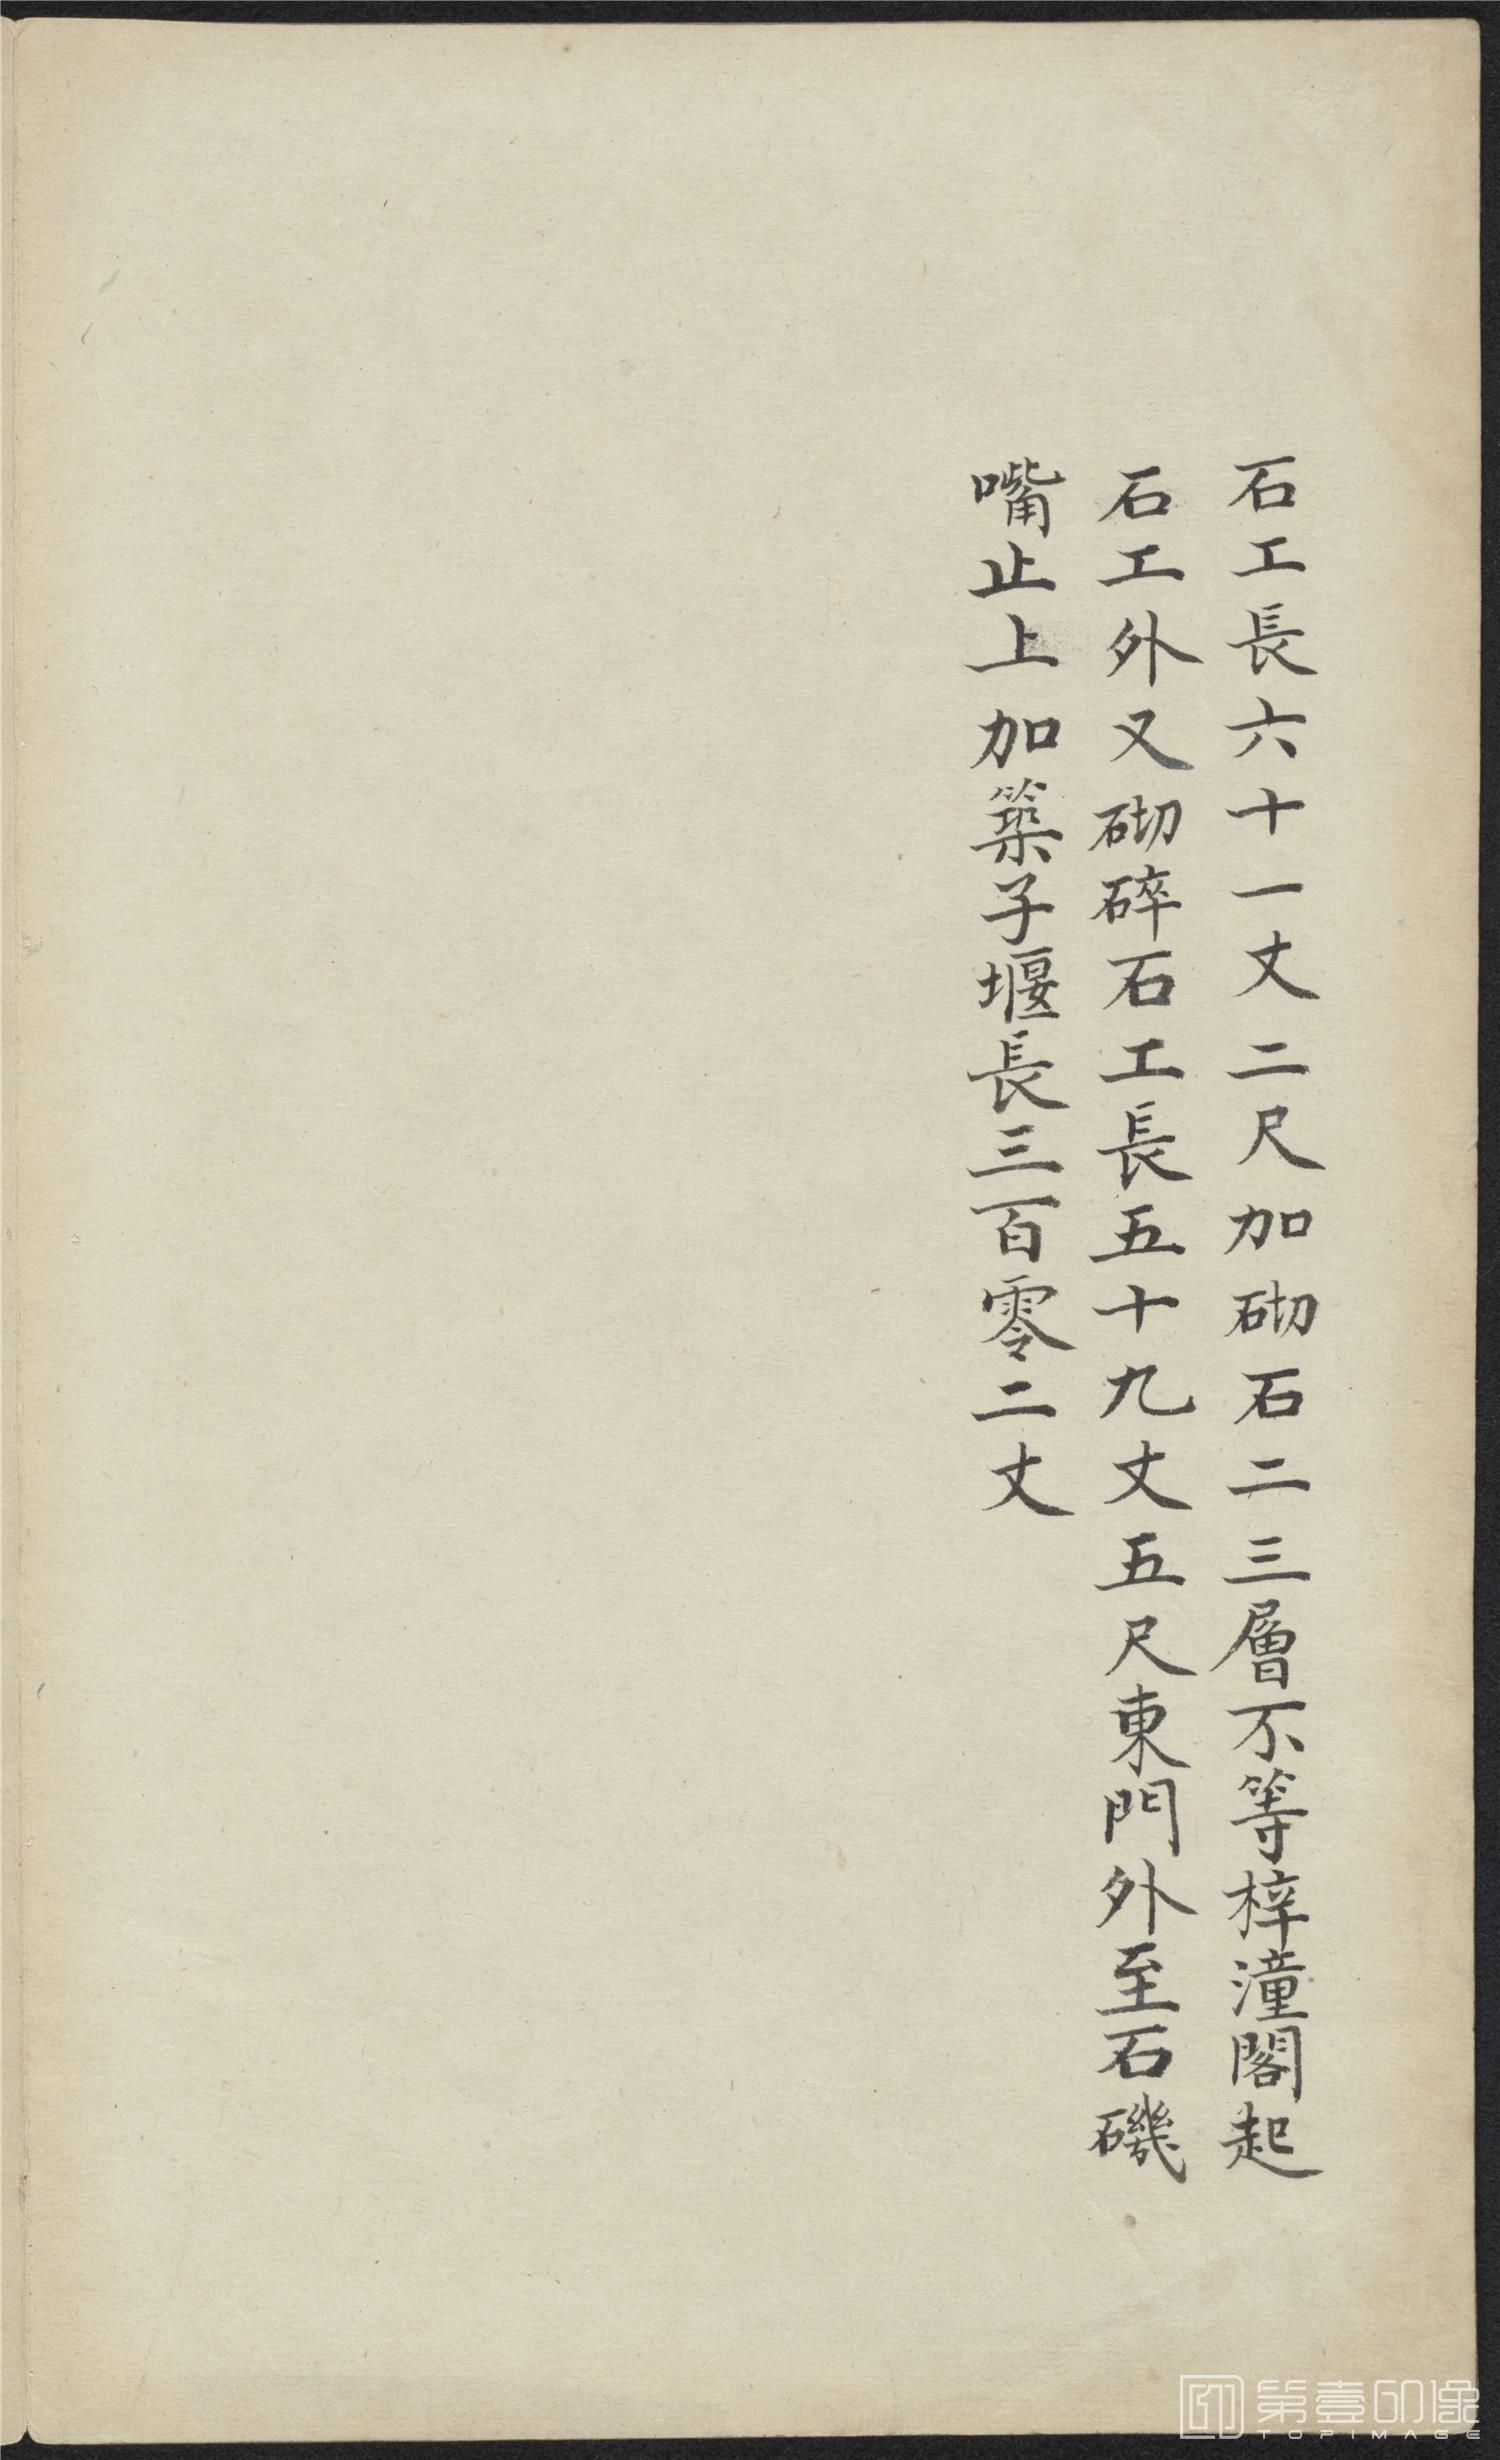 石工長六十一丈二尺加砌石二三層不等梓潼閣起
石工外又砌碎石工長五十九丈五尺東門外至石磯
嘴止上加築子堰長三百零二丈
第壹印像
TOPIMAGE